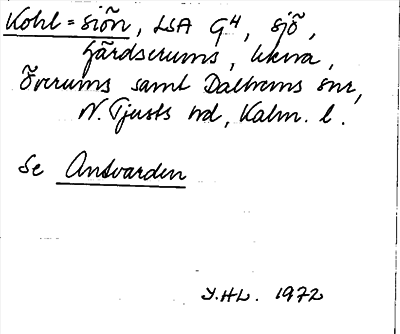 Kohl = siön, LSA G4, sjö,
Gärdserums, Ukna,
Överums samt Dalhems snr,
N. Tjusts hd, Kalm. l.
Se Ansvarden
Y.HL. 1972